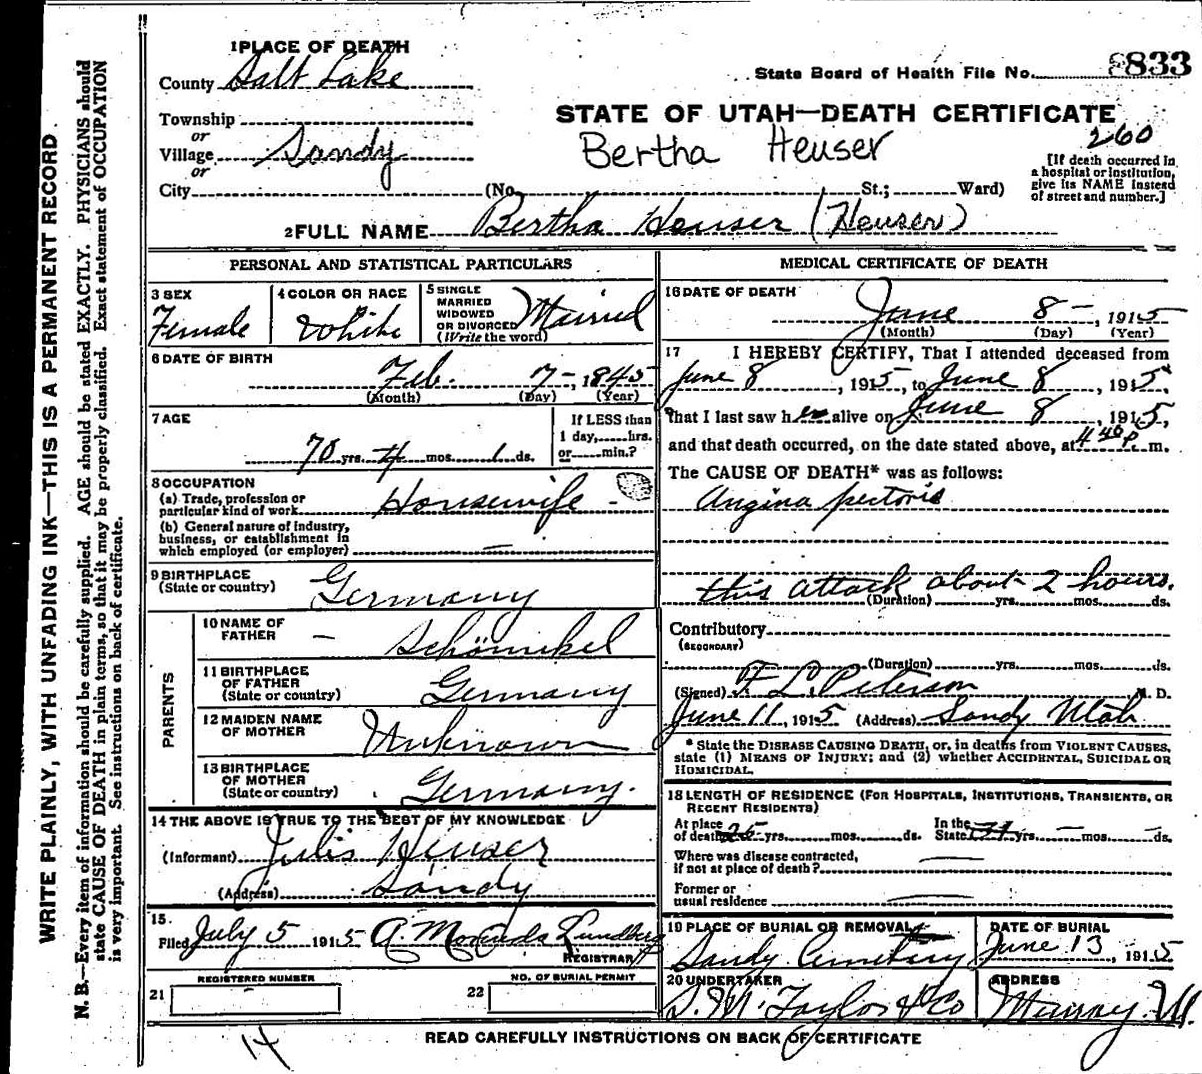 1 PLACE OF DEATH
County Salt Lake
State Board of Health File No. 833
Township
or
Village Sandy
or
City (No. St.; Ward)
STATE OF UTAH—DEATH CERTIFICATE
Bertha Heuser
260
[If death occurred in
a hospital or institution,
give its NAME instead
of street and number.]
2 FULL NAME Bertha Heuser (Heuser)
PERSONAL AND STATISTICAL PARTICULARS
3 SEX
Female
4 COLOR OR RACE
White
5 SINGLE
MARRIED
WIDOWED
OR DIVORCED
(Write the word)
Married
6 DATE OF BIRTH
Feb. 7-, 1845
(Month) (Day) (Year)
7 AGE
70 yrs. 4 mos. 1 ds.
If LESS than
1 day, hrs.
or min.?
8 OCCUPATION
(a) Trade, profession or
particular kind of work Housewife
(b) General nature of industry,
business, or establishment in
which employed (or employer) —
9 BIRTHPLACE
(State or country) Germany
PARENTS
10 NAME OF
FATHER — Schömikel
11 BIRTHPLACE
OF FATHER
(State or country) Germany
12 MAIDEN NAME
OF MOTHER Unknown
13 BIRTHPLACE
OF MOTHER
(State or country) Germany.
14 THE ABOVE IS TRUE TO THE BEST OF MY KNOWLEDGE
(Informant) Julis Heuser
(Address) Sandy
15.
Filed July 5 1915 Lundberg
REGISTRAR
REGISTERED NUMBER
21
NO. OF BURIAL PERMIT
22
MEDICAL CERTIFICATE OF DEATH
16 DATE OF DEATH
June 8-, 1915
(Month) (Day) (Year)
17 I HEREBY CERTIFY, That I attended deceased from
June 8, 1915, to June 8, 1915,
that I last saw her alive on June 8, 1915,
and that death occurred, on the date stated above, at 4 40 P. m.
The CAUSE OF DEATH* was as follows:
Angina pectoris
this attack about 2 hours.
(Duration) yrs. mos. ds.
Contributory
(SECONDARY)
(Duration) yrs. mos. ds.
(Signed) F L. Peterson M. D.
June 11, 1915 (Address) Sandy Utah
* State the DISEASE CAUSING DEATH, or, in deaths from VIOLENT CAUSES,
state (1) MEANS OF INJURY; and (2) whether ACCIDENTAL, SUICIDAL OR
HOMICIDAL.
18 LENGTH OF RESIDENCE (FOR HOSPITALS, INSTITUTIONS, TRANSIENTS, OR
RECENT RESIDENTS)
At place
of death 25 yrs. mos. ds.
In the
State yrs. — mos. — ds.
Where was disease contracted,
if not at place of death? —
Former or
usual residence —
19 PLACE OF BURIAL OR REMOVAL
Sandy Cemetery
DATE OF BURIAL
June 13, 1915
20 UNDERTAKER
S. M. Taylor & Co
ADDRESS
Murray. U.
14
READ CAREFULLY INSTRUCTIONS ON BACK OF CERTIFICATE
WRITE PLAINLY, WITH UNFADING INK—THIS IS A PERMANENT RECORD
N. B.—Every item of information should be carefully supplied. AGE should be stated EXACTLY. PHYSICIANS should
state CAUSE OF DEATH in plain terms, so that it may be properly classified. Exact statement of OCCUPATION
is very important. See instructions on back of certificate.